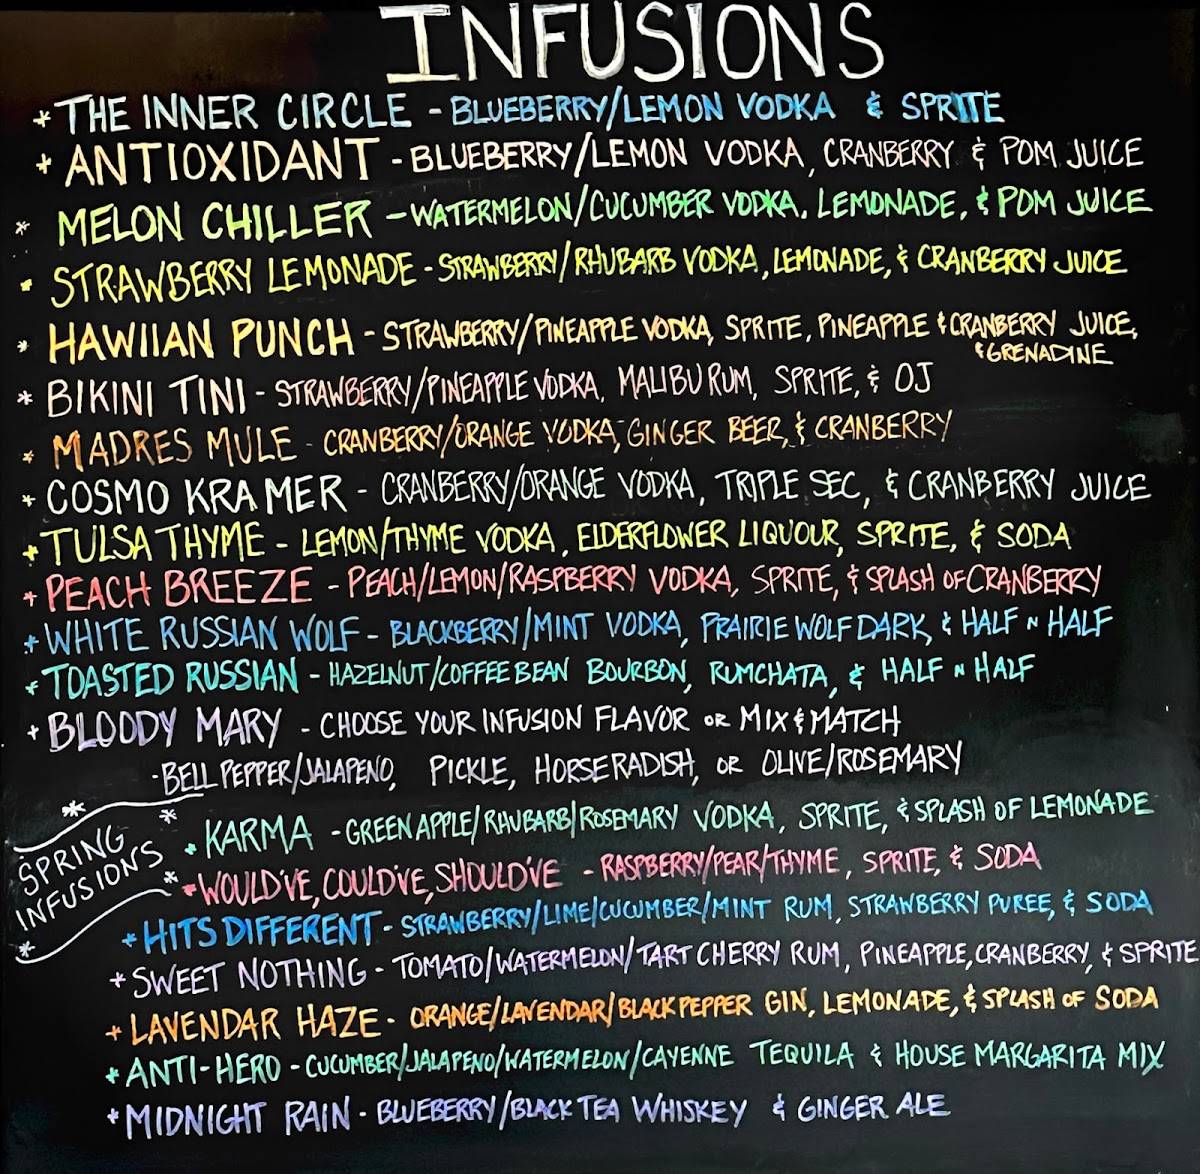 INFUSIONS
* THE INNER CIRCLE - BLUEBERRY/LEMON VODKA & SPRITE
* ANTIOXIDANT - BLUEBERRY/LEMON VODKA, CRANBERRY & POM JUICE
* MELON CHILLER - WATERMELON/CUCUMBER VODKA, LEMONADE, & POM JUICE
* STRAWBERRY LEMONADE - STRAWBERRY/RHUBARB VODKA, LEMONADE, & CRANBERRY JUICE
* HAWIIAN PUNCH - STRAWBERRY/PINEAPPLE VODKA, SPRITE, PINEAPPLE & CRANBERRY JUICE,
& GRENADINE
* BIKINI TINI - STRAWBERRY/PINEAPPLE VODKA, MALIBU RUM, SPRITE, & OJ
* MADRES MULE - CRANBERRY/ORANGE VODKA, GINGER BEER, & CRANBERRY
* COSMO KRAMER - CRANBERRY/ORANGE VODKA, TRIPLE SEC, & CRANBERRY JUICE
* TULSA THYME - LEMON/THYME VODKA, ELDERFLOWER LIQUOUR, SPRITE, & SODA
* PEACH BREEZE - PEACH/LEMON/RASPBERRY VODKA, SPRITE, & SPLASH OF CRANBERRY
* WHITE RUSSIAN WOLF - BLACKBERRY/MINT VODKA, PRAIRIE WOLF DARK, & HALF N HALF
* TOASTED RUSSIAN - HAZELNUT/COFFEE BEAN BOURBON, RUMCHATA, & HALF N HALF
* BLOODY MARY - CHOOSE YOUR INFUSION FLAVOR OR MIX & MATCH
- BELL PEPPER/JALAPENO, PICKLE, HORSERADISH, OR OLIVE/ROSEMARY
* SPRING *
INFUSIONS *
*
* KARMA - GREEN APPLE/RHUBARB/ROSEMARY VODKA, SPRITE, & SPLASH OF LEMONADE
* WOULD'VE, COULD'VE, SHOULD'VE - RASPBERRY/PEAR/THYME, SPRITE, & SODA
* HITS DIFFERENT - STRAWBERRY/LIME/CUCUMBER/MINT RUM, STRAWBERRY PUREE, & SODA
* SWEET NOTHING - TOMATO/WATERMELON/TART CHERRY RUM, PINEAPPLE, CRANBERRY, & SPRITE
* LAVENDAR HAZE - ORANGE/LAVENDAR/BLACK PEPPER GIN, LEMONADE, & SPLASH OF SODA
* ANTI-HERO - CUCUMBER/JALAPENO/WATERMELON/CAYENNE TEQUILA & HOUSE MARGARITA MIX
* MIDNIGHT RAIN - BLUEBERRY/BLACK TEA WHISKEY & GINGER ALE